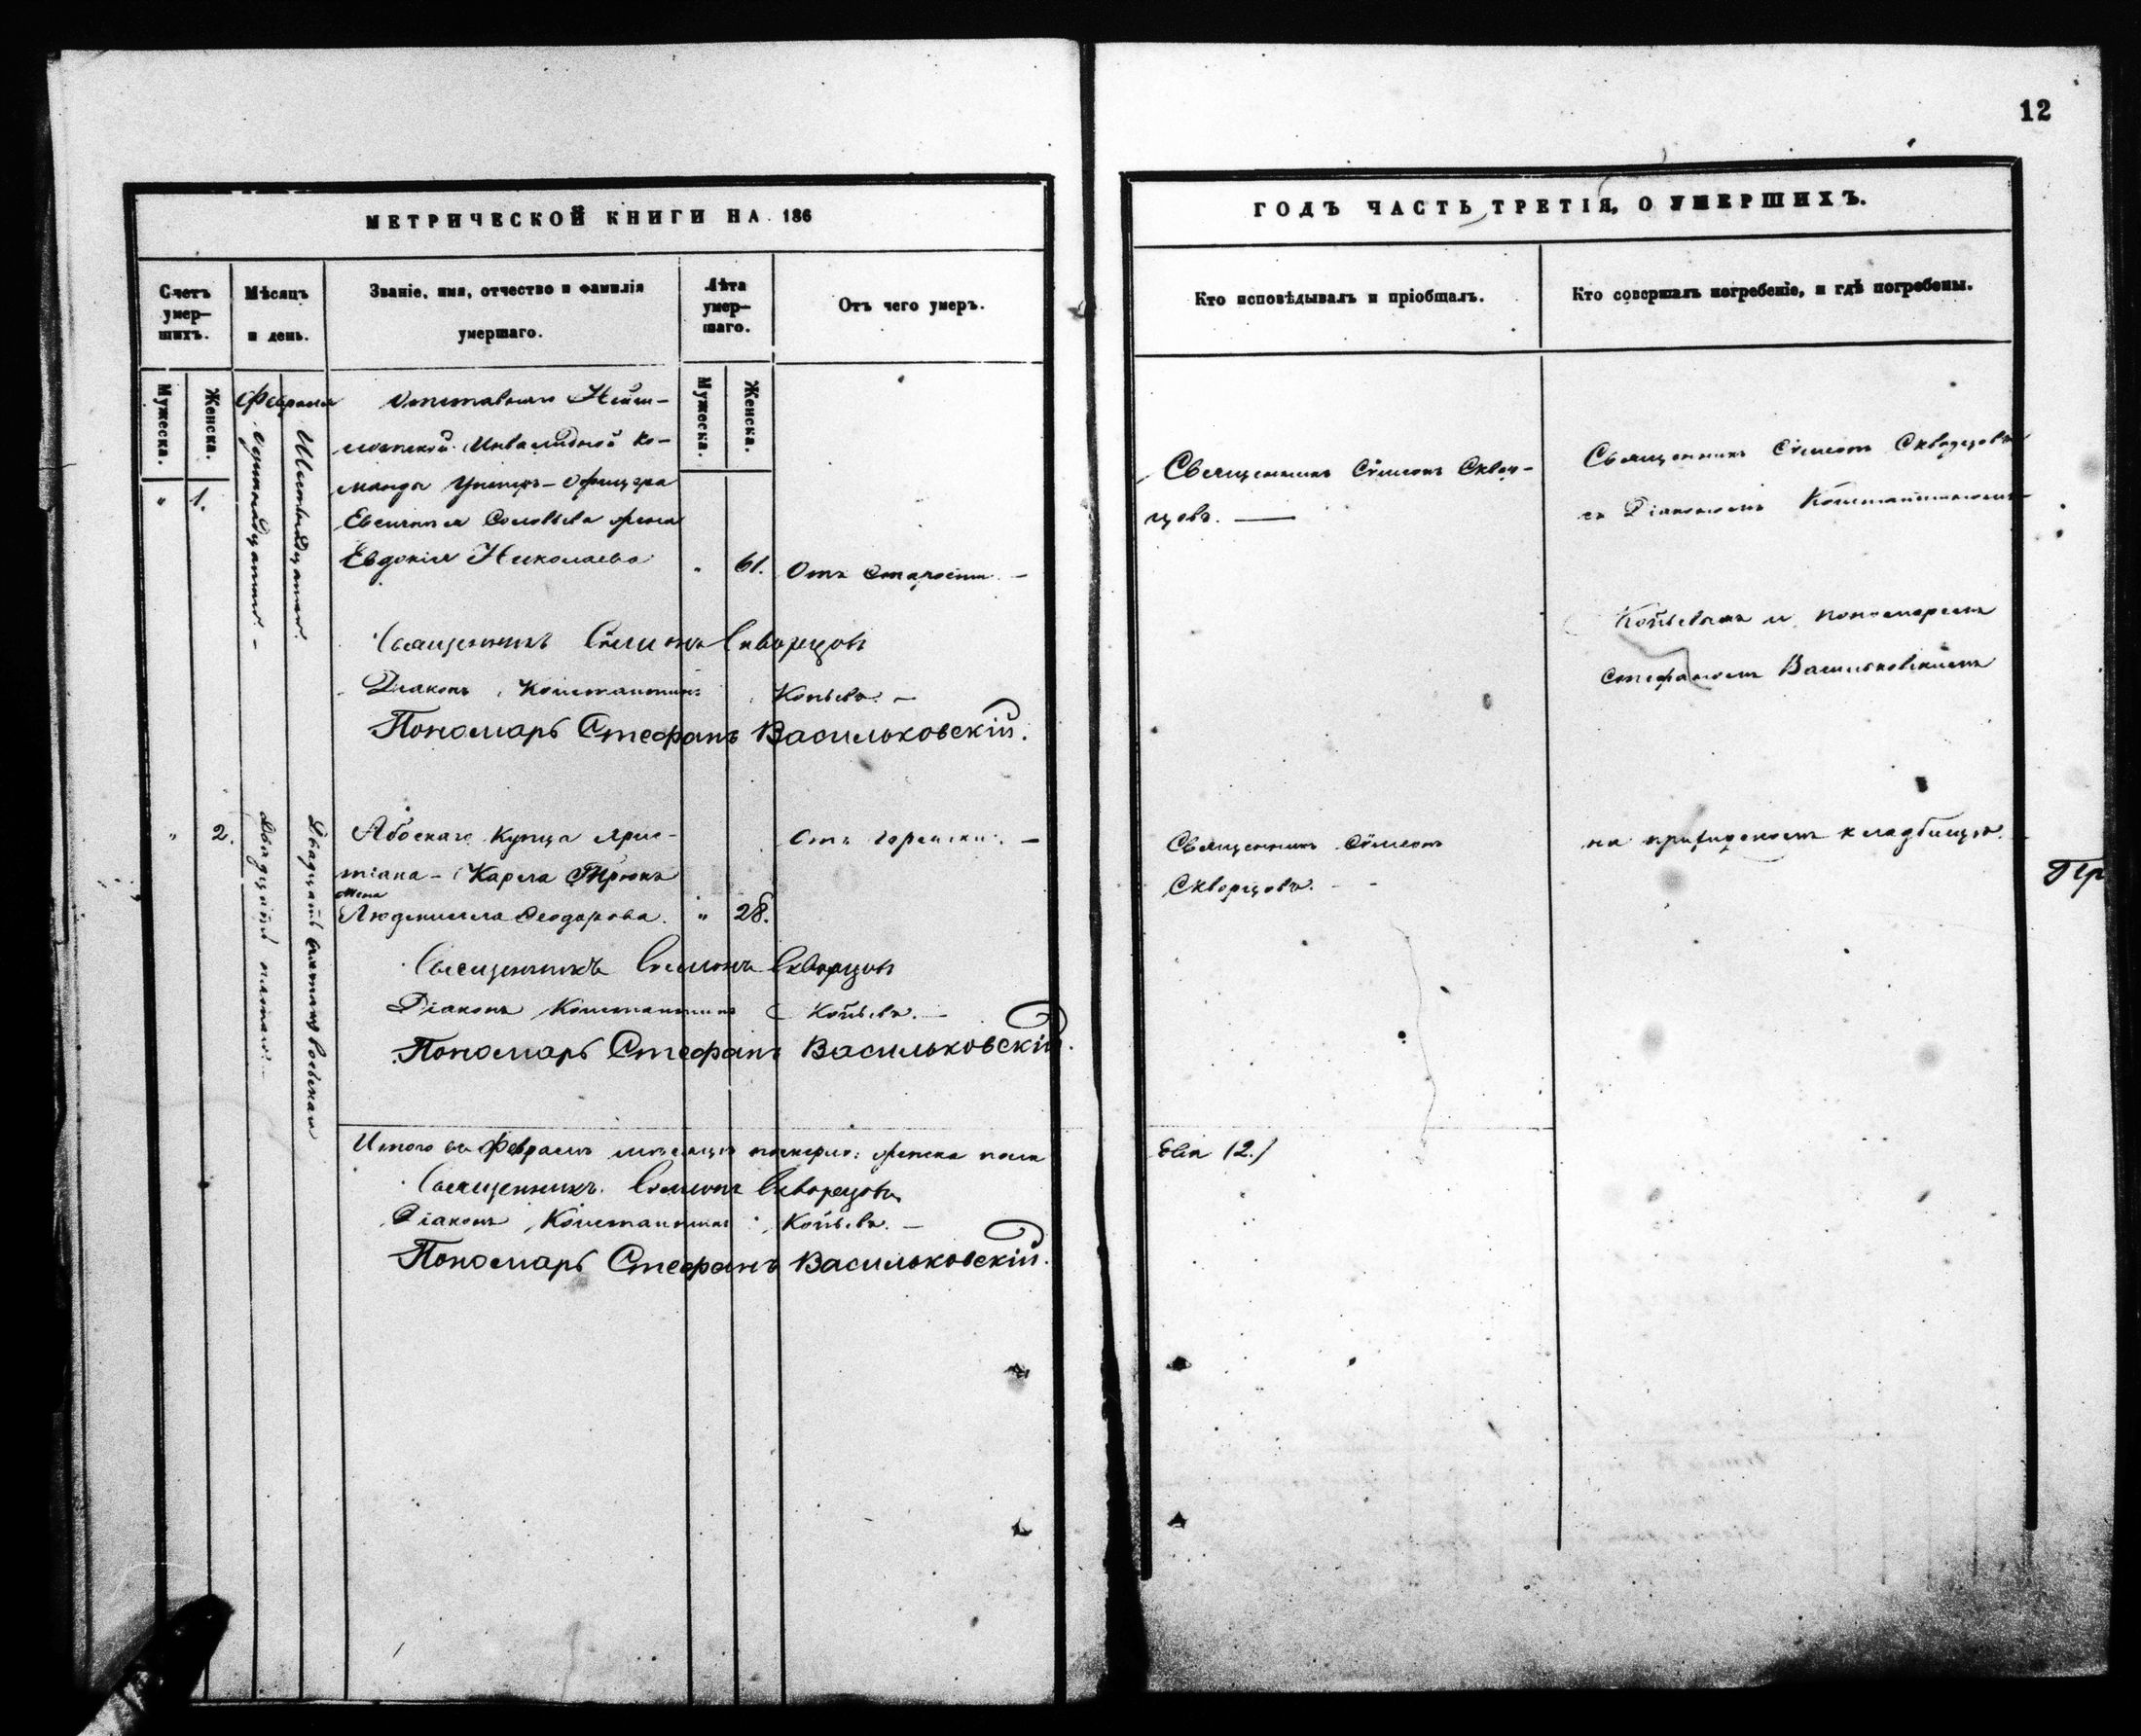 12
МЕТРИЧЕСКОЙ КНИГИ НА 186
Счетъ умер-шихъ.
Мѣсяцъ и день.
Званіе, имя, отчество и фамилія умершаго.
Лѣта умер-шаго.
Отъ чего умеръ.
Мужеска.
Женска.
Мужеска.
Женска.
Февраля
" 1.
Одиннадцатаго.
Отставнаго Нейш-
лотской Инвалидной ко-
манды Унтеръ-Офицера
Соловьева жена
Евдокія Николаева
" 61.
Отъ старости. –
Священникъ Сѵмеонъ Скворцовъ
Діаконъ Константинъ Копьевъ. –
Пономарь Стефанъ Васильковскій.
" 2.
Двадцать пятаго. –
Абоскаго Купца
Карла
жена
Людмилла Ѳеодорова. " 28.
Отъ горячки. –
Священникъ Сѵмеонъ Скворцовъ
Діаконъ Константинъ Копьевъ. –
Пономарь Стефанъ Васильковскій.
Итого въ Февралѣ мѣсяцѣ померло: женска пола
Священникъ Сѵмеонъ Скворцовъ
Діаконъ Константинъ Копьевъ. –
Пономарь Стефанъ Васильковскій.
ГОДЪ ЧАСТЬ ТРЕТІЯ, О УМЕРШИХЪ.
Кто исповѣдывалъ и пріобщалъ.
Кто совершалъ погребеніе, и гдѣ погребены.
Священникъ Сѵмеонъ Сквор-
цовъ. —
Священникъ Сѵмеонъ Скворцовъ
съ Діакономъ Константиномъ
Копьевымъ и пономаремъ
Стефаномъ Васильковскимъ
Священникъ Сѵмеонъ
Скворцовъ. –
на приходскомъ кладбищѣ.
(2.)